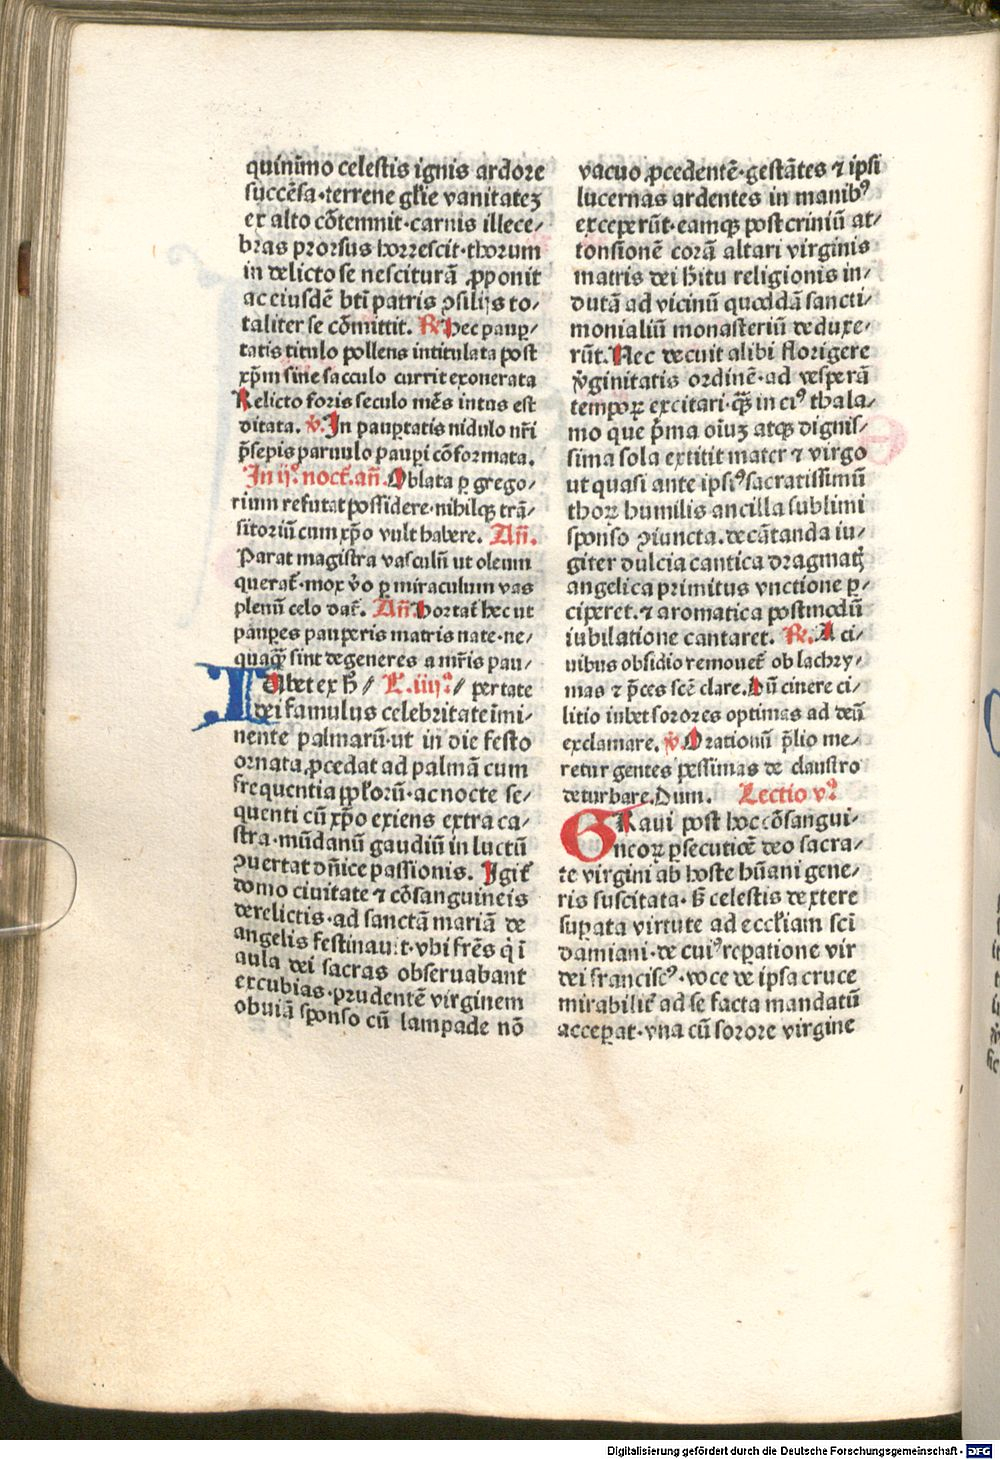 quinimo celestis ignis ardore
succēsa·terrene gl'ie vanitateꝫ
ex alto cōtemnit·carnis illece/
bras prorsus horrescit·thorum
in delicto se nesciturā ꝓponit
ac eiusdē bt̄i patris ꝯsilijs to/
taliter se cōmittit. ℟. Hec paup̄/
tatis titulo pollens intitulata post
xp̄m sine sacculo currit exonerata
Relicto foris seculo mēs intus est
ditata. ℣. In paup̄tatis nidulo nr̄i
p̄sepis paruulo paup̄i cōformata.
In ijº. noct̄. an̄. Oblata ꝑ grego/
rium refutat possidere·nihilqꝫ trā/
sitoriū cum xp̄o vult habere. An̄.
Parat magistra vasculū ut oleum
querat̄·mox v̄o ꝑ miraculum vas
plenū celo dat̄. An̄ Hortat̄ hec ut
paup̄es pauperis matris nate·ne/
quaqꝫ̄ sint degeneres a mr̄is pau/
Iubet ex h̄// L. iiijº// pertate
dei famulus celebritate īmi/
nente palmarū·ut in die festo
ornata ꝓcedat ad palmā cum
frequentia pp̄l'orū·ac nocte se/
quenti cū xp̄o exiens extra ca/
stra·mūdanū gaudiū in luctū
ꝯuertat dn̄ice passionis. Igit̄
domo ciuitate ⁊ cōsanguineis
derelictis·ad sanctā mariā de
angelis festinauit·vbi fr̄es q̇ ī
aula dei sacras obseruabant
excubias·prudentē virginem
obuiā sponso cū lampade nō
vacuo ꝓcedentē·gestātes ⁊ ipsi
lucernas ardentes in manibꝰ
exceperūt·eamqꝫ post criniū at/
tonsionē corā altari virginis
matris dei h̄itu religionis in/
dutā ad vicinū quoddā sancti/
monialiū monasteriū deduxe/
rūt. Nec decuit alibi florigere
v̄ginitatis ordinē·ad vesperā
tempoꝝ excitari·qꝫ̄ in eiꝰ thala/
mo que p̄ma oīuꝫ atqꝫ dignis/
sima sola extitit mater ⁊ virgo
ut quasi ante ipsiꝰ sacratissimū
thoꝝ humilis ancilla sublimi
sponso ꝯiuncta. decātanda iu/
giter dulcia cantica dragmatꝭ
angelica primitus vnctione ꝑ/
ciperet. ⁊ aromatica postmodū
iubilatione cantaret. ℟. A ci/
uibus obsidio remouet̄ ob lachry/
mas ⁊ p̄ces scē clare. Dū cinere ci/
litio iubet sorores optimas ad deū
exclamare. ℣. Orationū p̄lio me/
retur gentes pessimas de claustro
deturbare. Dum. Lectio vº
GRaui post hoc cōsangui/
neoꝝ ꝑsecutiōe deo sacra/
te virgini ab hoste hūani gene/
ris suscitata·s̄ celestis dextere
sup̄ata virtute ad eccl'iam sc̄i
damiani·de cuiꝰ rep̄atione vir
dei franciscꝰ·voce de ipsa cruce
mirabilit̄ ad se facta mandatū
accep̄at·vna cū sorore virgine
Digitalisierung gefördert durch die Deutsche Forschungsgemeinschaft - DFG